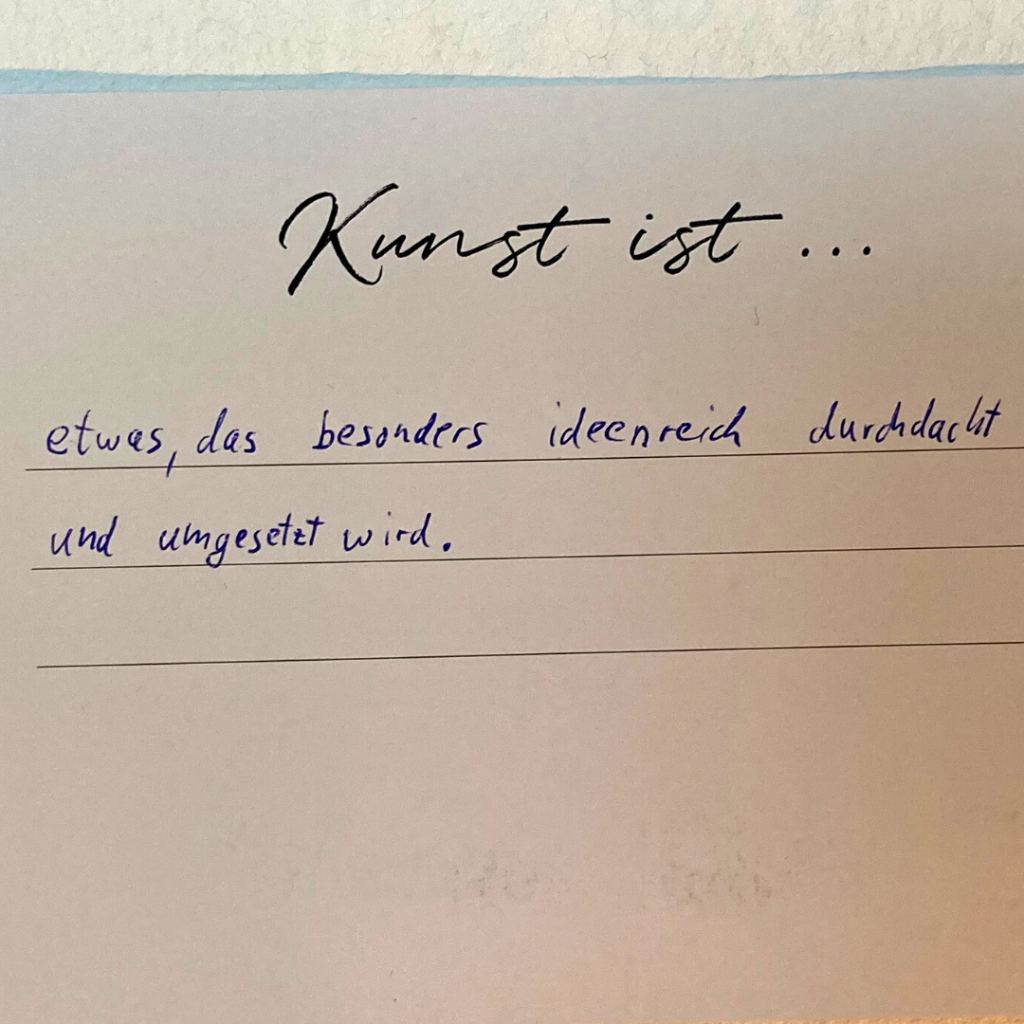 Kunst ist ...
etwas, das besonders ideenreich durchdacht
und umgesetzt wird.